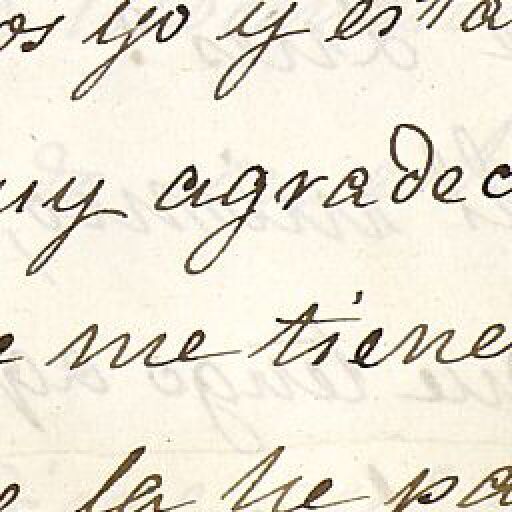 os yo y esta
uy agradec
e me tiene
e la he pa